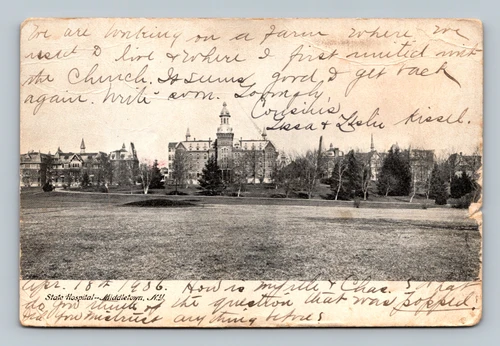 We are working on a Farm where we
used to live & where I first united with
the Church. It seems good to get back
again. Write soon. Lovingly
Cousin's
& Leslie Kissel.
State Hospital--Middletown, N.Y.
Apr. 18th 1906. How is Myrtle & Chas. What
do you think of the question that was popped?
Did you mistrust anything before?